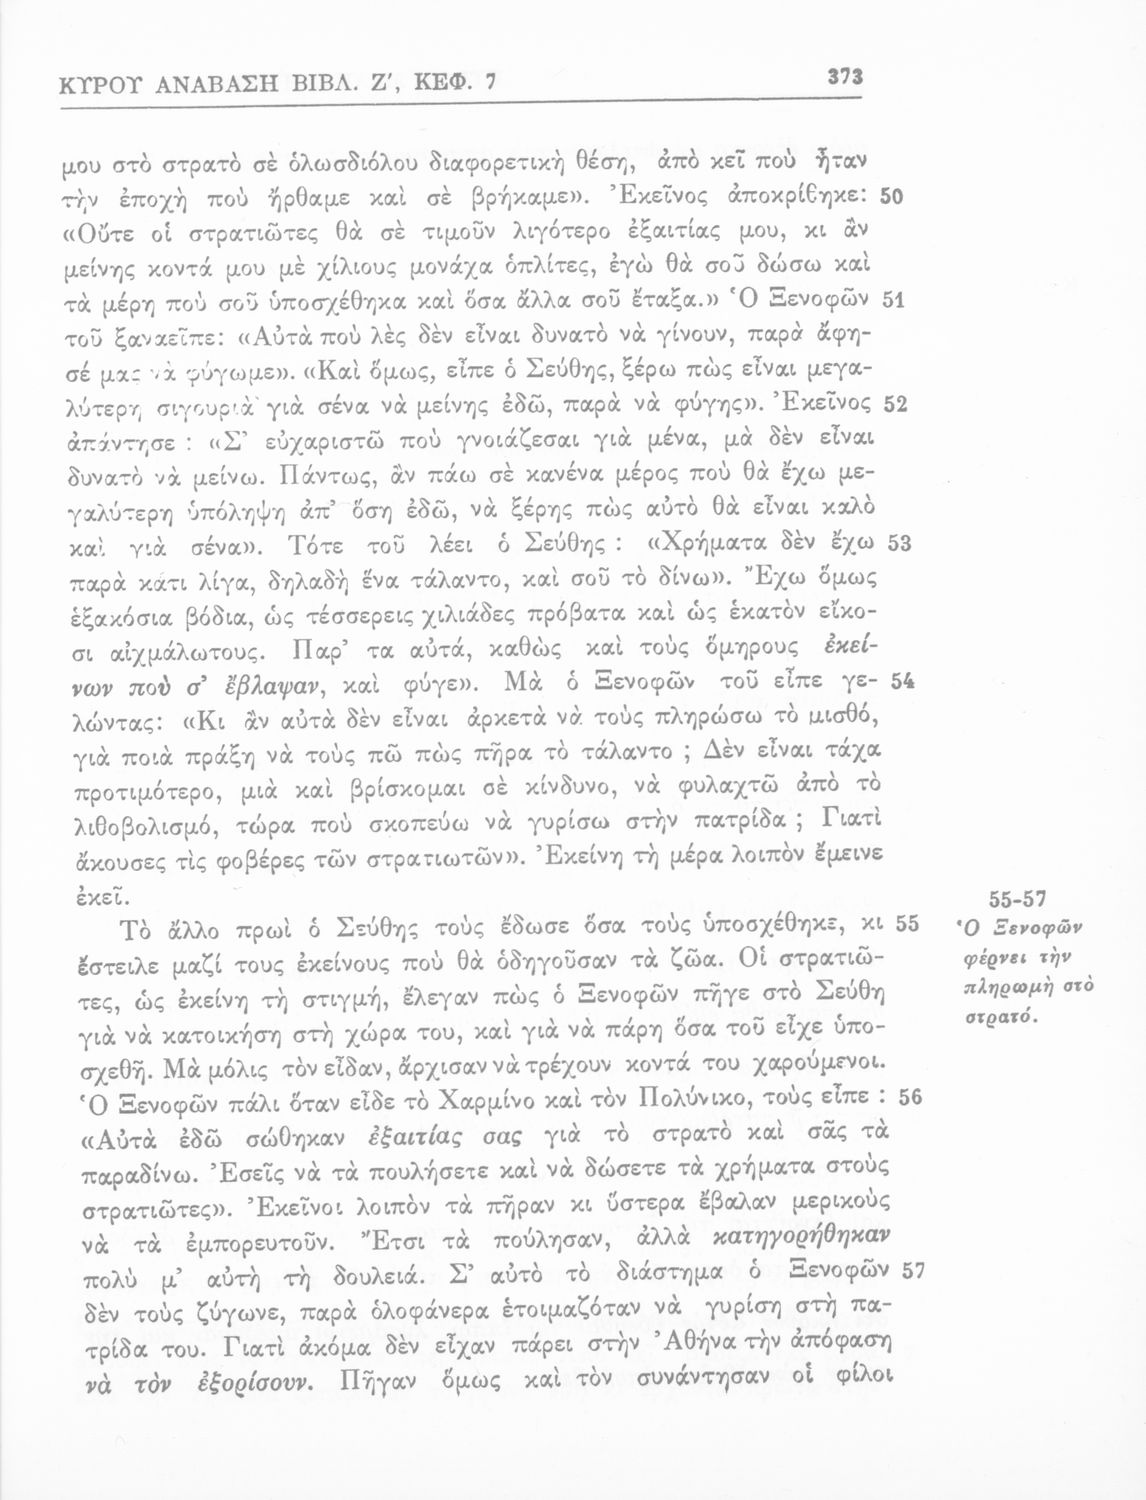 ΚΥΡΟΥ ΑΝΑΒΑΣΗ ΒΙΒΛ. Ζ', ΚΕΦ. 7 373
μου στὸ στρατὸ σὲ ὁλωσδιόλου διαφορετικὴ θέση, ἀπὸ κεῖ ποὺ ἦταν
τὴν ἐποχὴ ποὺ ἤρθαμε καὶ σὲ βρήκαμε». Ἐκεῖνος ἀποκρίθηκε: 50
«Οὔτε οἱ στρατιῶτες θὰ σὲ τιμοῦν λιγότερο ἐξαιτίας μου, κι ἂν
μείνης κοντά μου μὲ χίλιους μονάχα ὁπλίτες, ἐγὼ θὰ σοῦ δώσω καὶ
τὰ μέρη ποὺ σοῦ ὑποσχέθηκα καὶ ὅσα ἄλλα σοῦ ἔταξα.» Ὁ Ξενοφῶν 51
τοῦ ξαναεῖπε: «Αὐτὰ ποὺ λὲς δὲν εἶναι δυνατὸ νὰ γίνουν, παρὰ ἄφη-
σέ μας νὰ φύγωμε». «Καὶ ὅμως, εἶπε ὁ Σεύθης, ξέρω πὼς εἶναι μεγα-
λύτερη σιγουριὰ γιὰ σένα νὰ μείνης ἐδῶ, παρὰ νὰ φύγης». Ἐκεῖνος 52
ἀπάντησε : «Σ' εὐχαριστῶ ποὺ γνοιάζεσαι γιὰ μένα, μὰ δὲν εἶναι
δυνατὸ νὰ μείνω. Πάντως, ἂν πάω σὲ κανένα μέρος ποὺ θὰ ἔχω με-
γαλύτερη ὑπόληψη ἀπ' ὅση ἐδῶ, νὰ ξέρης πὼς αὐτὸ θὰ εἶναι καλὸ
καὶ γιὰ σένα». Τότε τοῦ λέει ὁ Σεύθης : «Χρήματα δὲν ἔχω 53
παρὰ κάτι λίγα, δηλαδὴ ἕνα τάλαντο, καὶ σοῦ τὸ δίνω». Ἔχω ὅμως
ἑξακόσια βόδια, ὡς τέσσερεις χιλιάδες πρόβατα καὶ ὡς ἑκατὸν εἴκο-
σι αἰχμάλωτους. Παρ' τα αὐτά, καθὼς καὶ τοὺς ὅμηρους ἐκεί-
νων ποὺ σ' ἔβλαψαν, καὶ φύγε». Μὰ ὁ Ξενοφῶν τοῦ εἶπε γε- 54
λώντας: «Κι ἂν αὐτὰ δὲν εἶναι ἀρκετὰ νὰ τοὺς πληρώσω τὸ μισθό,
γιὰ ποιὰ πράξη νὰ τοὺς πῶ πὼς πῆρα τὸ τάλαντο ; Δὲν εἶναι τάχα
προτιμότερο, μιὰ καὶ βρίσκομαι σὲ κίνδυνο, νὰ φυλαχτῶ ἀπὸ τὸ
λιθοβολισμό, τώρα ποὺ σκοπεύω νὰ γυρίσω στὴν πατρίδα ; Γιατὶ
ἄκουσες τὶς φοβέρες τῶν στρατιωτῶν». Ἐκείνη τὴ μέρα λοιπὸν ἔμεινε
ἐκεῖ.
Τὸ ἄλλο πρωὶ ὁ Σεύθης τοὺς ἔδωσε ὅσα τοὺς ὑποσχέθηκε, κι 55
ἔστειλε μαζί τους ἐκείνους ποὺ θὰ ὁδηγοῦσαν τὰ ζῶα. Οἱ στρατιῶ-
τες, ὡς ἐκείνη τὴ στιγμή, ἔλεγαν πὼς ὁ Ξενοφῶν πῆγε στὸ Σεύθη
γιὰ νὰ κατοικήση στὴ χώρα του, καὶ γιὰ νὰ πάρη ὅσα τοῦ εἶχε ὑπο-
σχεθῆ. Μὰ μόλις τὸν εἶδαν, ἄρχισαν νὰ τρέχουν κοντά του χαρούμενοι.
Ὁ Ξενοφῶν πάλι ὅταν εἶδε τὸ Χαρμίνο καὶ τὸν Πολύνικο, τοὺς εἶπε : 56
«Αὐτὰ ἐδῶ σώθηκαν ἐξαιτίας σας γιὰ τὸ στρατὸ καὶ σᾶς τὰ
παραδίνω. Ἐσεῖς νὰ τὰ πουλήσετε καὶ νὰ δώσετε τὰ χρήματα στοὺς
στρατιῶτες». Ἐκεῖνοι λοιπὸν τὰ πῆραν κι ὕστερα ἔβαλαν μερικοὺς
νὰ τὰ ἐμπορευτοῦν. Ἔτσι τὰ πούλησαν, ἀλλὰ κατηγορήθηκαν
πολὺ μ' αὐτὴ τὴ δουλειά. Σ' αὐτὸ τὸ διάστημα ὁ Ξενοφῶν 57
δὲν τοὺς ζύγωνε, παρὰ ὁλοφάνερα ἑτοιμαζόταν νὰ γυρίση στὴ πα-
τρίδα του. Γιατὶ ἀκόμα δὲν εἶχαν πάρει στὴν Ἀθήνα τὴν ἀπόφαση
νὰ τὸν ἐξορίσουν. Πῆγαν ὅμως καὶ τὸν συνάντησαν οἱ φίλοι
55-57
Ὁ Ξενοφῶν
φέρνει τὴν
πληρωμὴ στὸ
στρατό.